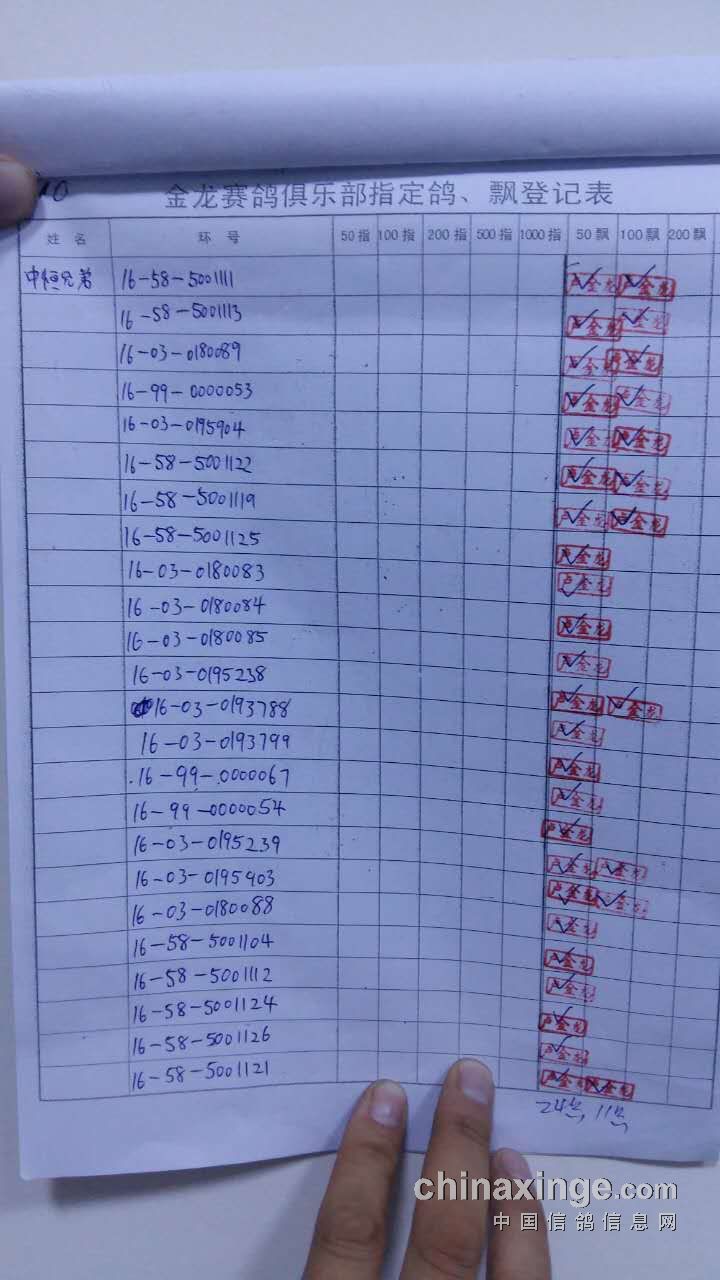 10
金龙赛鸽俱乐部指定鸽、飘登记表
姓 名 环 号 50指 100指 200指 500指 1000指 50飘 100飘 200飘
中恒兄弟 16-58-5001111 卢金龙 卢金龙
16-58-5001113 卢金龙 卢金龙
16-03-0180089 卢金龙 卢金龙
16-99-0000053 卢金龙 卢金龙
16-03-0195904 卢金龙 卢金龙
16-58-5001122 卢金龙 卢金龙
16-58-5001119 卢金龙 卢金龙
16-58-5001125 卢金龙
16-03-0180083 卢金龙
16-03-0180084 卢金龙
16-03-0180085 卢金龙
16-03-0195238 卢金龙 卢金龙
16-03-0193788 卢金龙
16-03-0193799 卢金龙
16-99-0000067 卢金龙
16-99-0000054 卢金龙
16-03-0195239 卢金龙 卢金龙
16-03-0195903 卢金龙 卢金龙
16-03-0180088 卢金龙
16-58-5001104 卢金龙
16-58-5001112 卢金龙
16-58-5001124 卢金龙
16-58-5001126 卢金龙
16-58-5001121 卢金龙 卢金龙
24 11
chinaxinge.com
中国信鸽信息网